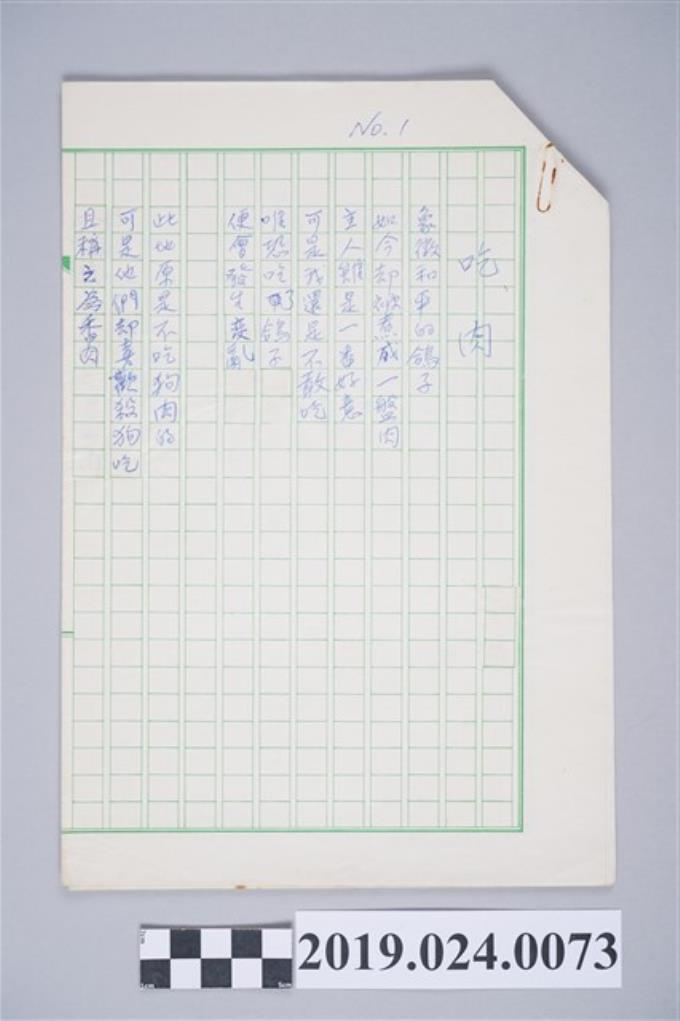 No. 1
吃肉
象徵和平的鴿子
如今却被煮成一盤肉
主人雖是一番好意
可是我還是不敢吃
唯恐吃了鴿子
便會發生變亂
此地原是不吃狗肉的
可是他們却喜歡殺狗吃
且稱之為香肉
2cm
1cm
5cm
2019.024.0073